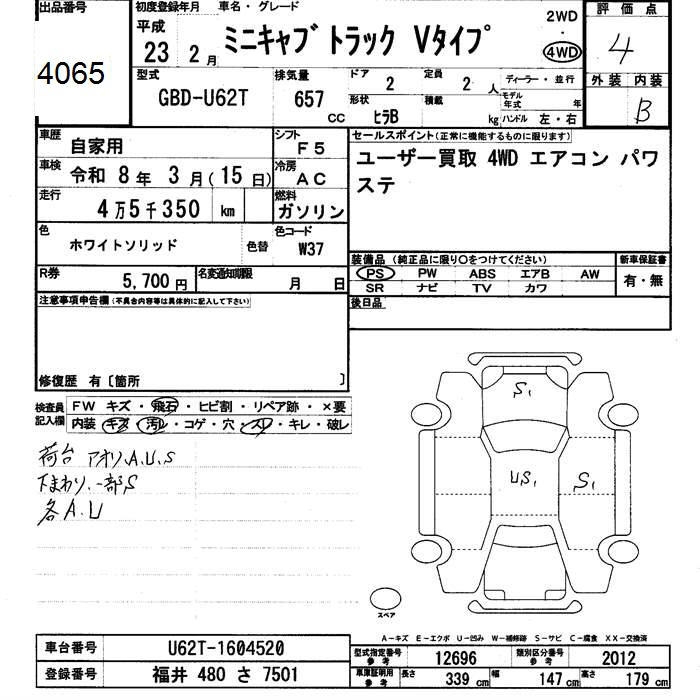 出品番号 初度登録年月 車名・グレード 評価点
4065 平成 23 2月 ミニキャブ トラック Vタイプ 2WD ・ 4WD 4
型式 排気量 ドア 定員 ディーラー・並行 外装 内装
GBD-U62T 657 CC 2 2 人 モデル年式 年 B
形状 積載 ハンドル 左・右
ヒラB kg
車歴 自家用 シフト F5 セールスポイント(正常に機能するものに限ります)
車検 令和 8年 3月(15日) 冷房 AC ユーザー買取 4WD エアコン パワ
走行 4万5千350 km 燃料 ガソリン ステ
色 ホワイトソリッド 色替 色コード W37
装備品(純正品に限り○をつけてください) 新車保証書
R券 5,700円 名変通知期限 月 日 PS PW ABS エアB AW 有・無
SR ナビ TV カワ
注意事項申告欄(不具合内容等は具体的に記入して下さい) 後日品
修復歴 有〔箇所 〕
検査員記入欄 FW キズ・飛石・ヒビ割・リペア跡・×要
内装 キズ・汚レ・コゲ・穴・スレ・キレ・破レ
荷台 アオリ.A.U.S
下まわり.一部S
各A.U
S1
U.S1 S1
スペア
A−キズ E−エクボ U−凹み W−補修跡 S−サビ C−腐食 XX−交換済
車台番号 U62T-1604520 型式指定番号 参考 12696 類別区分番号 参考 2012
登録番号 福井 480 さ 7501 車庫証明用 参考 長さ 339 cm 幅 147 cm 高さ 179 cm